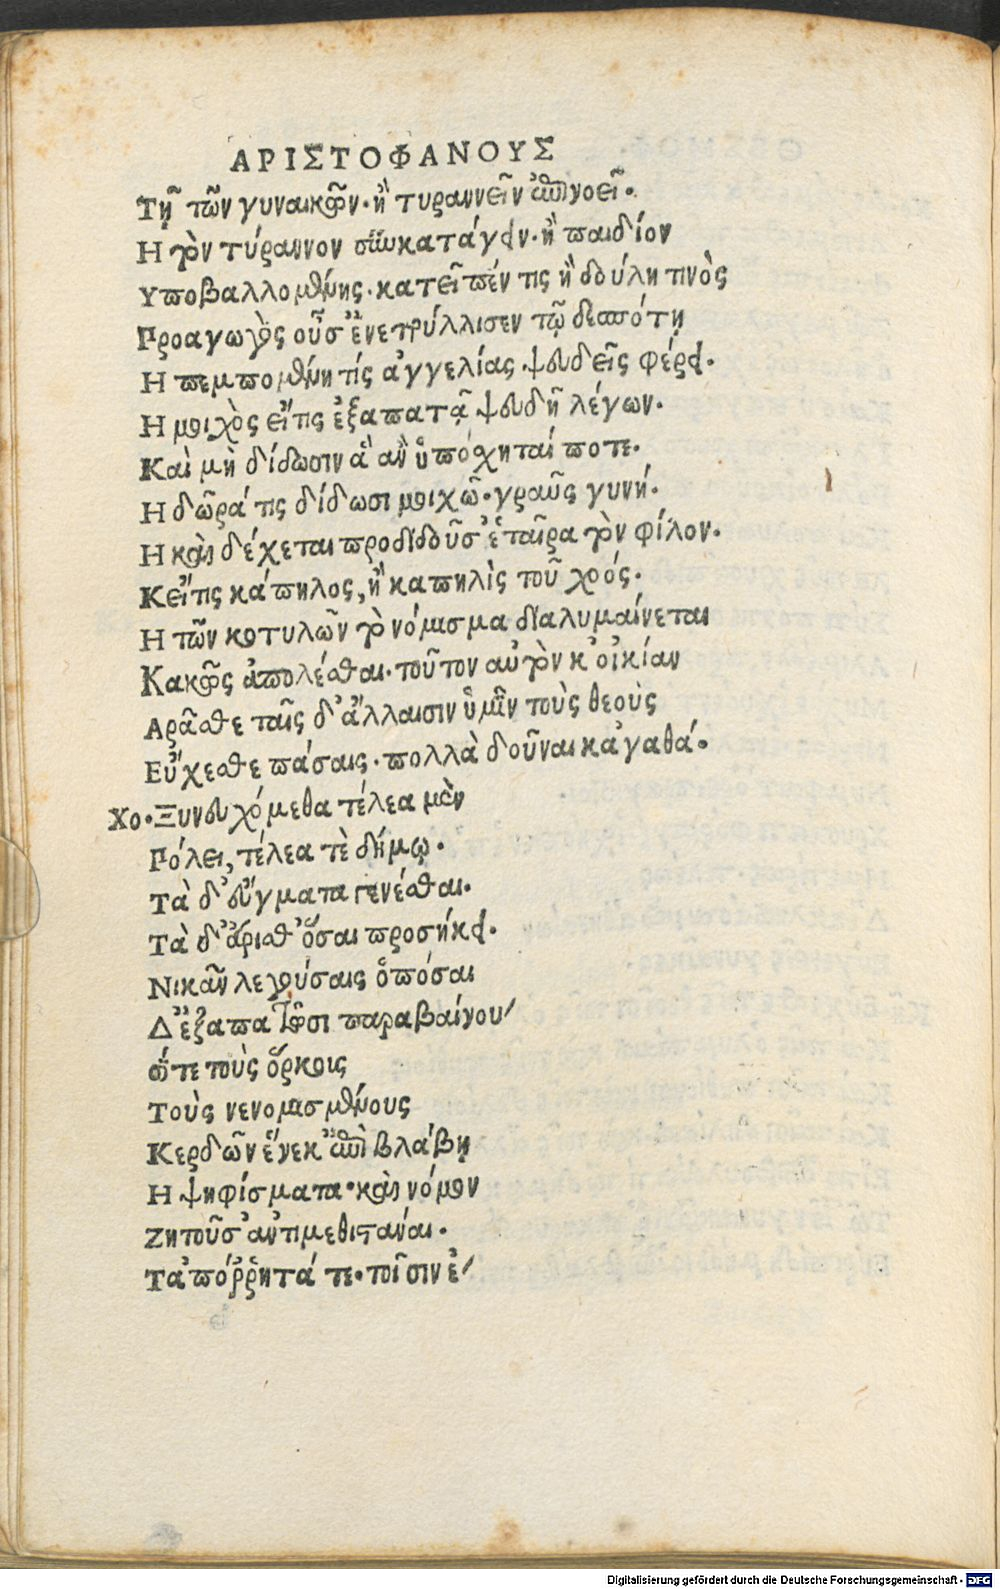 ΑΡΙΣΤΟΦΑΝΟΥΣ
Τῇ τῶν γυναικῶν· ἢ τυραννεῖν ἐπινοεῖ·
Η τὸν τύραννον συγκατάγειν· ἢ παιδίον
Υποβαλλομένης· κατεῖπέν τις ἢ δούλη τινὸς
Προαγωγὸς οὖσ' ἐνετρύλλισεν τῷ δεσπότῃ
Η πεμπομένη τίς ἀγγελίας· ψευδεῖς φέρει·
Η μοιχὸς εἴτις ἐξαπατᾷ ψευδῆ λέγων·
Καὶ μὴ δίδωσιν ἃ ἂν ὑπόχηταί ποτε·
Η δῶρά τις δίδωσι μοιχῷ· γραῦς γυνή·
Η καὶ δέχεται προδιδοῦσ' ἑταῖρα τὸν φίλον·
Κεἴτις κάπηλος, ἢ καπηλὶς τοῦ χρός·
Η τῶν κοτυλῶν τὸ νόμισμα διαλυμαίνεται
Κακῶς ἀπολέσθαι· τοῦτον αὐτὸν κ' οἰκίαν
Αρᾶσθε ταῖς δ' ἄλλαισιν ὑμῖν τοὺς θεοὺς
Εὔχεσθε πάσαις· πολλὰ δοῦναι κἀγαθά·
Χο· Ξυνευχόμεθα τέλεα μὲν
Πόλει, τέλεα τὲ δήμῳ·
Τὰ δ' εὔγματα γενέσθαι·
Τὰ δ' ἄρισθ' ὅσαι προσήκει·
Νικᾶν λεγούσαις ὁπόσαι
Δ' ἐξαπατῶσι παραβαίνου/
σί τε τοὺς ὅρκοις
Τοὺς νενομισμένους
Κερδῶν ἕνεκ' ἐπὶ βλάβῃ
Η ψηφίσματα· καὶ νόμον
Ζητοῦσ' ἀντιμεθιστάναι·
Τἀπόῤῥητά τε· τοῖσιν ἐ/
Digitalisierung gefördert durch die Deutsche Forschungsgemeinschaft - DFG